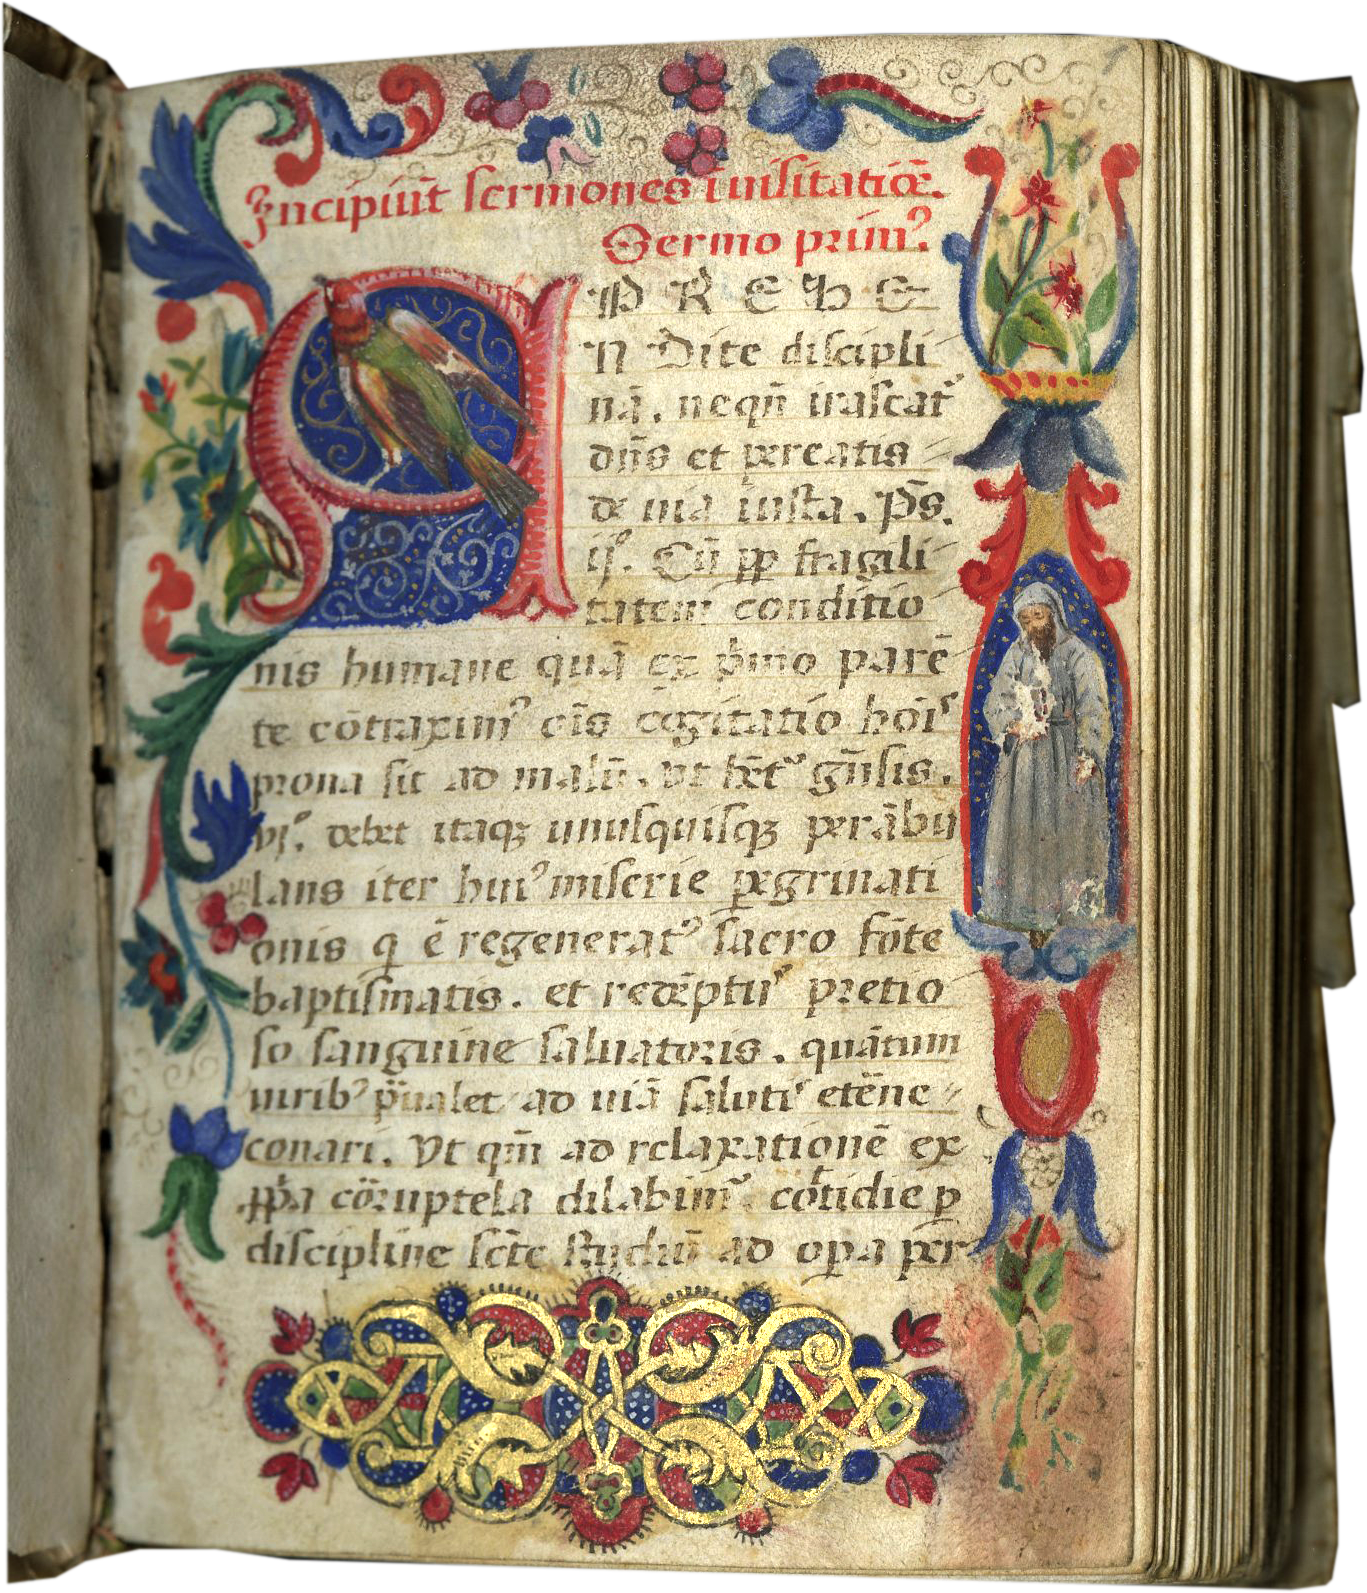 Incipiūt sermones ī uisitatiōe.
Sermo prim⁹.
A P R E H E
N Dite discipli
nā. nequā irascat᷑
dn̄s et pereatis
de uia iusta. Ps̄.
ij⁹. Cū ꝓp fragili
tatem conditio
nis humane quā ex p̄mo parē
te cōtraxim⁹ oīs cogitatio hōīs
prona sit ad malū. vt hēt᷑ gn̄sis.
vj⁹. debet itaqꝫ unusquisqꝫ perābu
lans iter hui⁹ miserie peregrinati
onis q ē regenerat⁹ sacro fōte
baptismatis. et redēptus pretio
so sanguine saluatoris. quātum
uirib⁹ p̄ualet ad uiā salutis etēne
conari. Vt qm̄ ad relaxationē ex
ꝓp̄a corruptela dilabim᷑ cottidie p
discipline scē studiū ad oꝑa per